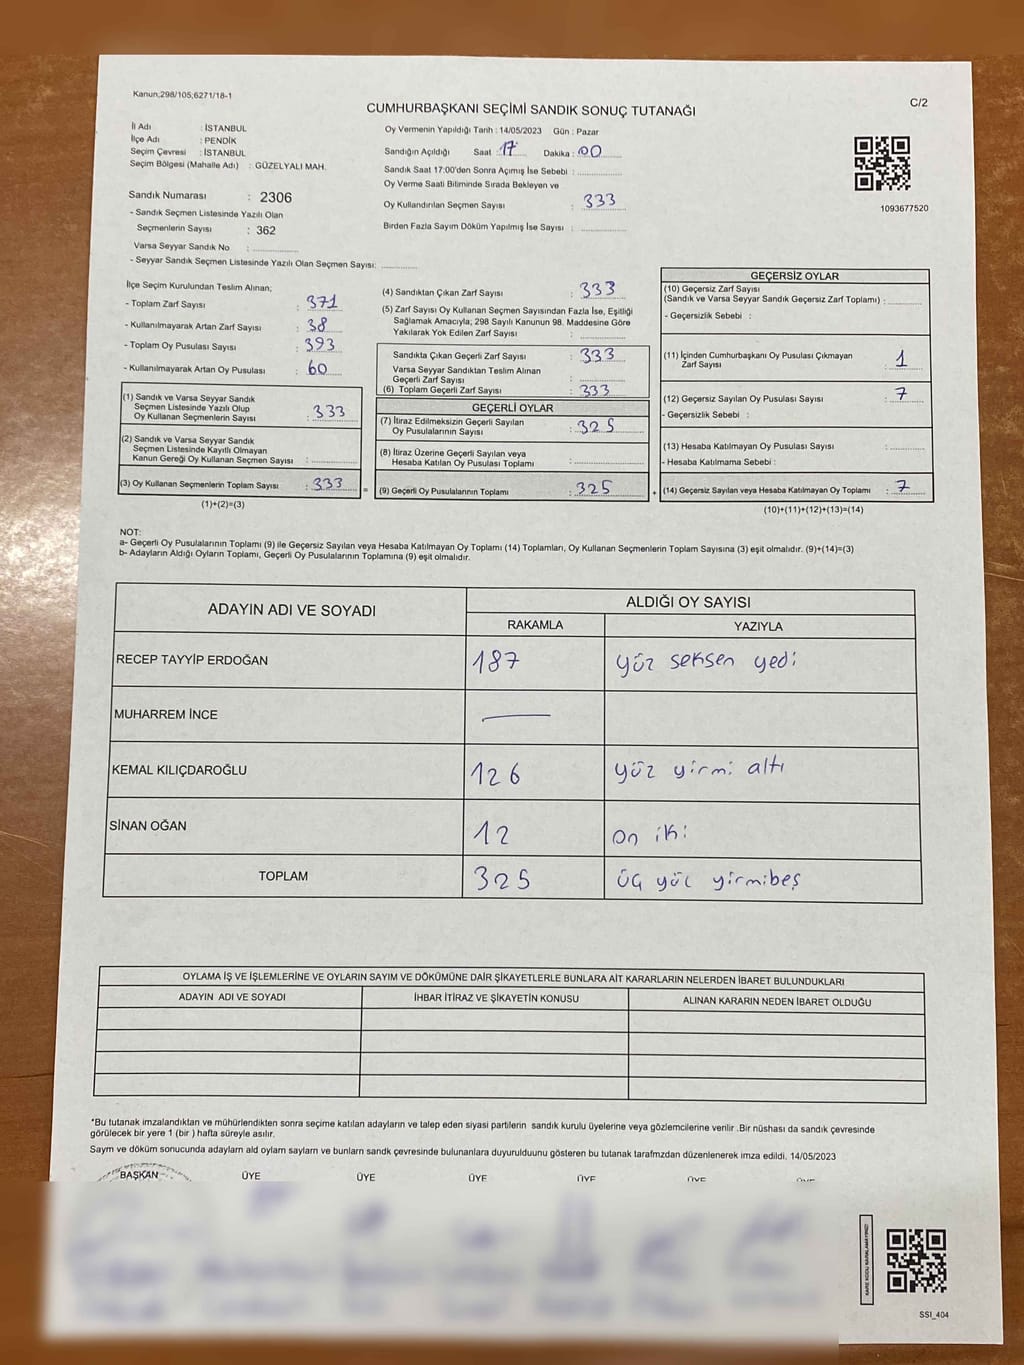 Kanun;298/105;6271/18-1
C/2
CUMHURBAŞKANI SEÇİMİ SANDIK SONUÇ TUTANAĞI
İl Adı : İSTANBUL
İlçe Adı : PENDİK
Seçim Çevresi : İSTANBUL
Seçim Bölgesi (Mahalle Adı) : GÜZELYALI MAH.
Oy Vermenin Yapıldığı Tarih : 14/05/2023 Gün : Pazar
Sandığın Açıldığı Saat 17 Dakika : 00
Sandık Saat 17:00'den Sonra Açımış İse Sebebi :
Oy Verme Saati Bitiminde Sırada Bekleyen ve
Oy Kullandırılan Seçmen Sayısı : 333
Birden Fazla Sayım Döküm Yapılmış İse Sayısı :
1093677520
Sandık Numarası : 2306
- Sandık Seçmen Listesinde Yazılı Olan
Seçmenlerin Sayısı : 362
Varsa Seyyar Sandık No :
- Seyyar Sandık Seçmen Listesinde Yazılı Olan Seçmen Sayısı:
İlçe Seçim Kurulundan Teslim Alınan;
- Toplam Zarf Sayısı : 371
- Kullanılmayarak Artan Zarf Sayısı : 38
- Toplam Oy Pusulası Sayısı : 393
- Kullanılmayarak Artan Oy Pusulası : 60
(1) Sandık ve Varsa Seyyar Sandık
Seçmen Listesinde Yazılı Olup
Oy Kullanan Seçmenlerin Sayısı : 333
(2) Sandık ve Varsa Seyyar Sandık
Seçmen Listesinde Kayıtlı Olmayan
Kanun Gereği Oy Kullanan Seçmen Sayısı :
(3) Oy Kullanan Seçmenlerin Toplam Sayısı : 333
(1)+(2)=(3)
(4) Sandıktan Çıkan Zarf Sayısı : 333
(5) Zarf Sayısı Oy Kullanan Seçmen Sayısından Fazla İse, Eşitliği
Sağlamak Amacıyla; 298 Sayılı Kanunun 98. Maddesine Göre
Yakılarak Yok Edilen Zarf Sayısı :
Sandıkta Çıkan Geçerli Zarf Sayısı : 333
Varsa Seyyar Sandıktan Teslim Alınan
Geçerli Zarf Sayısı :
(6) Toplam Geçerli Zarf Sayısı : 333
GEÇERLİ OYLAR
(7) İtiraz Edilmeksizin Geçerli Sayılan
Oy Pusulalarının Sayısı : 325
(8) İtiraz Üzerine Geçerli Sayılan veya
Hesaba Katılan Oy Pusulası Toplamı :
(9) Geçerli Oy Pusulalarının Toplamı : 325
GEÇERSİZ OYLAR
(10) Geçersiz Zarf Sayısı
(Sandık ve Varsa Seyyar Sandık Geçersiz Zarf Toplamı) :
- Geçersizlik Sebebi :
(11) İçinden Cumhurbaşkanı Oy Pusulası Çıkmayan
Zarf Sayısı : 1
(12) Geçersiz Sayılan Oy Pusulası Sayısı : 7
- Geçersizlik Sebebi :
(13) Hesaba Katılmayan Oy Pusulası Sayısı :
- Hesaba Katılmama Sebebi :
(14) Geçersiz Sayılan veya Hesaba Katılmayan Oy Toplamı : 7
(10)+(11)+(12)+(13)=(14)
NOT:
a- Geçerli Oy Pusulalarının Toplamı (9) ile Geçersiz Sayılan veya Hesaba Katılmayan Oy Toplamı (14) Toplamları, Oy Kullanan Seçmenlerin Toplam Sayısına (3) eşit olmalıdır. (9)+(14)=(3)
b- Adayların Aldığı Oyların Toplamı, Geçerli Oy Pusulalarının Toplamına (9) eşit olmalıdır.
ADAYIN ADI VE SOYADI
ALDIĞI OY SAYISI
RAKAMLA YAZIYLA
RECEP TAYYİP ERDOĞAN 187 yüz seksen yedi
MUHARREM İNCE —
KEMAL KILIÇDAROĞLU 126 yüz yirmi altı
SİNAN OĞAN 12 on iki
TOPLAM 325 üç yüz yirmibeş
OYLAMA İŞ VE İŞLEMLERİNE VE OYLARIN SAYIM VE DÖKÜMÜNE DAİR ŞİKAYETLERLE BUNLARA AİT KARARLARIN NELERDEN İBARET BULUNDUKLARI
ADAYIN ADI VE SOYADI İHBAR İTİRAZ VE ŞİKAYETİN KONUSU ALINAN KARARIN NEDEN İBARET OLDUĞU
*Bu tutanak imzalandıktan ve mühürlendikten sonra seçime katılan adayların ve talep eden siyasi partilerin sandık kurulu üyelerine veya gözlemcilerine verilir .Bir nüshası da sandık çevresinde
görülecek bir yere 1 (bir ) hafta süreyle asılır.
Sayım ve döküm sonucunda adayların ald oyları sayları ve bunların sandk çevresinde bulunanlara duyurulduunu gösteren bu tutanak tarafmzdan düzenlenerek imza edildi. 14/05/2023
BAŞKAN ÜYE ÜYE ÜYE ÜYE ÜYE
KARE KODU KARALAMAYINIZ!
SSI_404